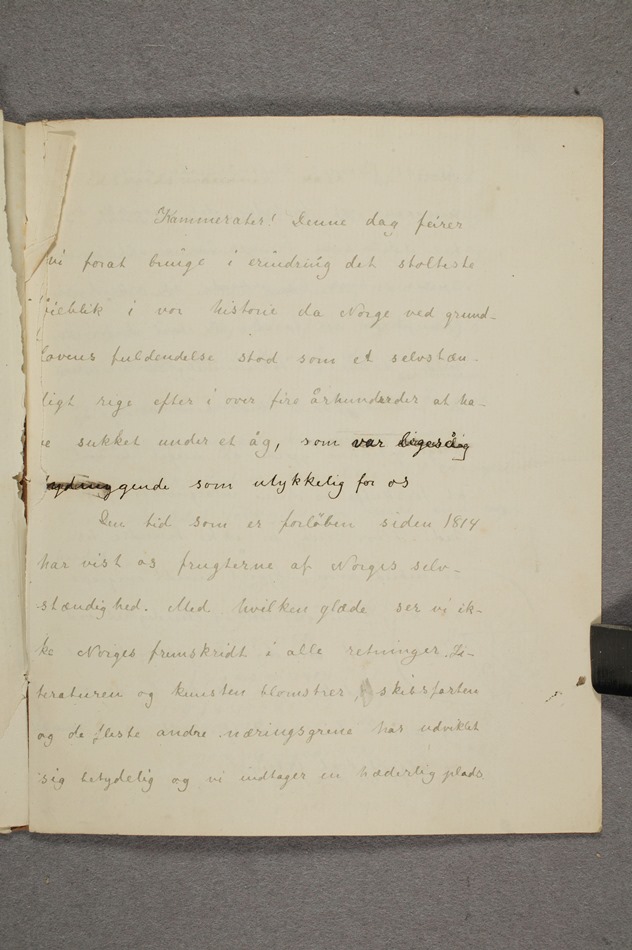 Kammerater! Denne dag feirer
vi forat bringe i erindring det stolteste
øieblik i vor historie da Norge ved grund-
lovens fuldendelse stod som et selvstæn-
digt rige efter i over fire århundreder at ha-
ve sukket under et åg, som var ligeså
gende som ulykkelig for os
Den tid som er forløben siden 1814
har vist os frugterne af Norges selv-
stændighed. Med hvilken glæde ser vi ik-
ke Norges fremskridt i alle retninger. Li-
teraturen og kunsten blomstrer, skibsfarten
og de fleste andre næringsgrene har udviklet
sig betydelig og vi indtager en hæderlig plads